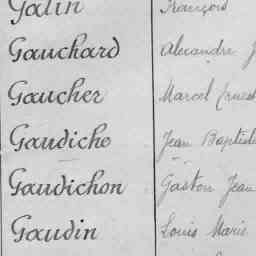 Galin François
Gauchard Alexandre J
Gaucher Marcel Ernest
Gaudicho Jean Baptiste
Gaudichon Gaston Jean
Gaudin Louis Marie